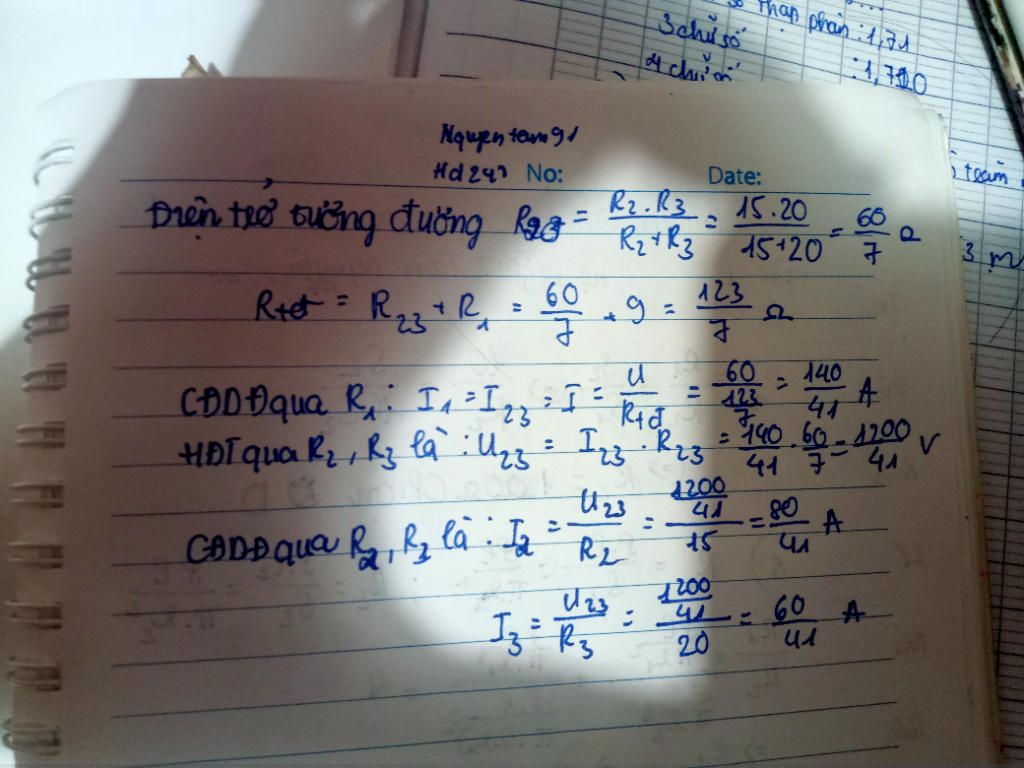 số thập phân : 1,71
3 chữ số
4 chữ số : 1,710
Nguyentam91
Hd247 No: Date:
Điện trở tương đương R23 = R2.R3/R2+R3 = 15.20/15+20 = 60/7 Ω
Rtđ = R23 + R1 = 60/7 + 9 = 123/7 Ω
CĐDĐ qua R1 : I1 = I23 = I = U/Rtđ = 60/(123/7) = 140/41 A
HĐT qua R2, R3 là : U23 = I23 . R23 = 140/41 . 60/7 = 1200/41 V
CĐDĐ qua R2, R3 là : I2 = U23/R2 = (1200/41)/15 = 80/41 A
I3 = U23/R3 = (1200/41)/20 = 60/41 A